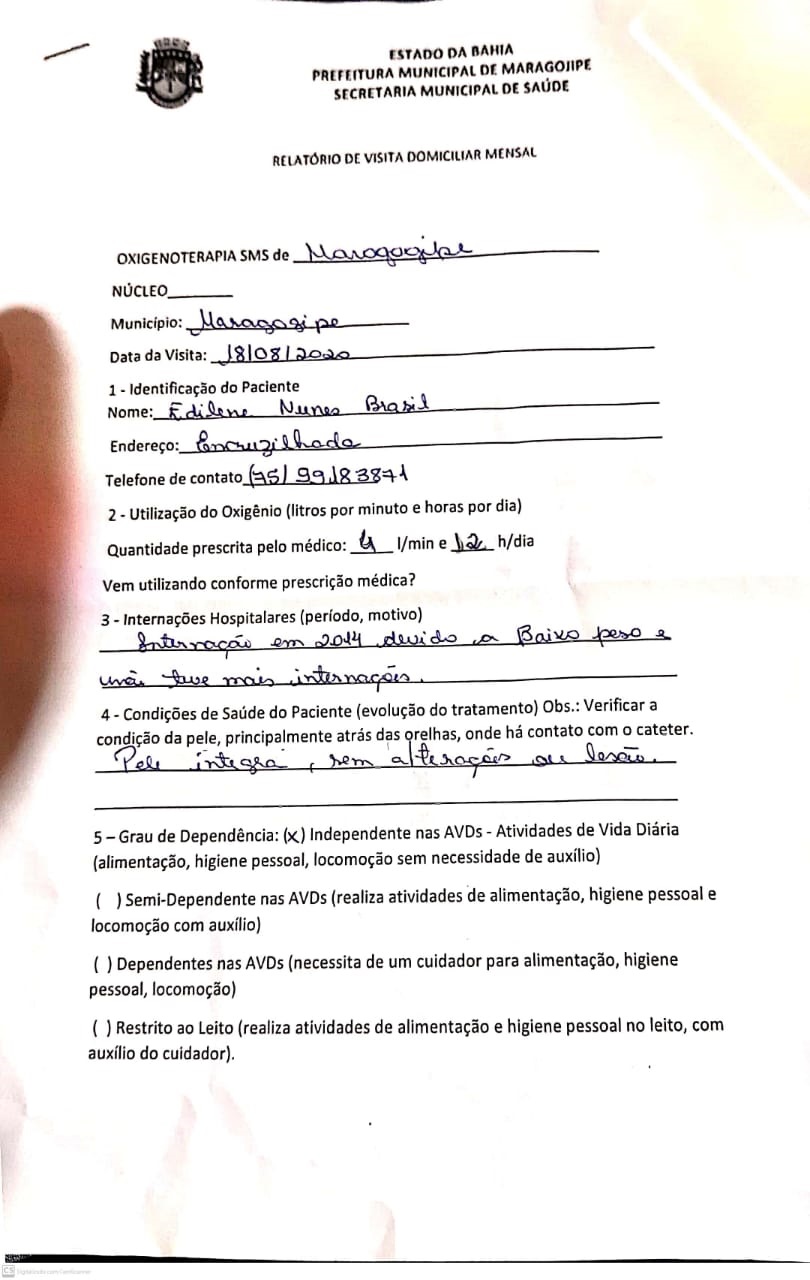 ESTADO DA BAHIA
PREFEITURA MUNICIPAL DE MARAGOJIPE
SECRETARIA MUNICIPAL DE SAÚDE
RELATÓRIO DE VISITA DOMICILIAR MENSAL
OXIGENOTERAPIA SMS de Maragogipe
NÚCLEO______
Município: Maragogipe
Data da Visita: 18/08/2020
1 - Identificação do Paciente
Nome: Edilene Nunes Brasil
Endereço: Encruzilhada
Telefone de contato (75) 99183871
2 - Utilização do Oxigênio (litros por minuto e horas por dia)
Quantidade prescrita pelo médico: 4 l/min e 12 h/dia
Vem utilizando conforme prescrição médica?
3 - Internações Hospitalares (período, motivo)
Internação em 2014 devido a Baixo peso e
não teve mais internações.
4 - Condições de Saúde do Paciente (evolução do tratamento) Obs.: Verificar a
condição da pele, principalmente atrás das orelhas, onde há contato com o cateter.
Pele íntegra, sem alterações ou lesão.
5 – Grau de Dependência: (x) Independente nas AVDs - Atividades de Vida Diária
(alimentação, higiene pessoal, locomoção sem necessidade de auxílio)
( ) Semi-Dependente nas AVDs (realiza atividades de alimentação, higiene pessoal e
locomoção com auxílio)
( ) Dependentes nas AVDs (necessita de um cuidador para alimentação, higiene
pessoal, locomoção)
( ) Restrito ao Leito (realiza atividades de alimentação e higiene pessoal no leito, com
auxílio do cuidador).
CS Digitalizado com CamScanner